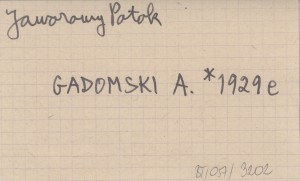 Jaworowy Potok
GADOMSKI A. *1929 e
/087/ 3202